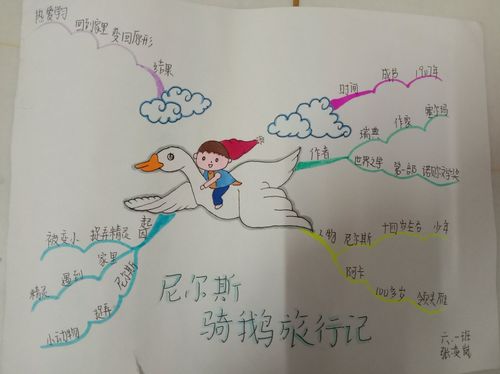 热爱学习
回到家里 变回原形
结果
时间
成书 1907年
作者
瑞典 作家 塞尔玛
世界文学 第一部 诺贝尔文学奖
起因
被变小 捉弄精灵
家里
精灵 遇到
尼尔斯
小动物 捉弄
人物 尼尔斯 十四岁左右 少年
阿卡
100多岁 领头雁
尼尔斯
骑鹅旅行记
六.一班